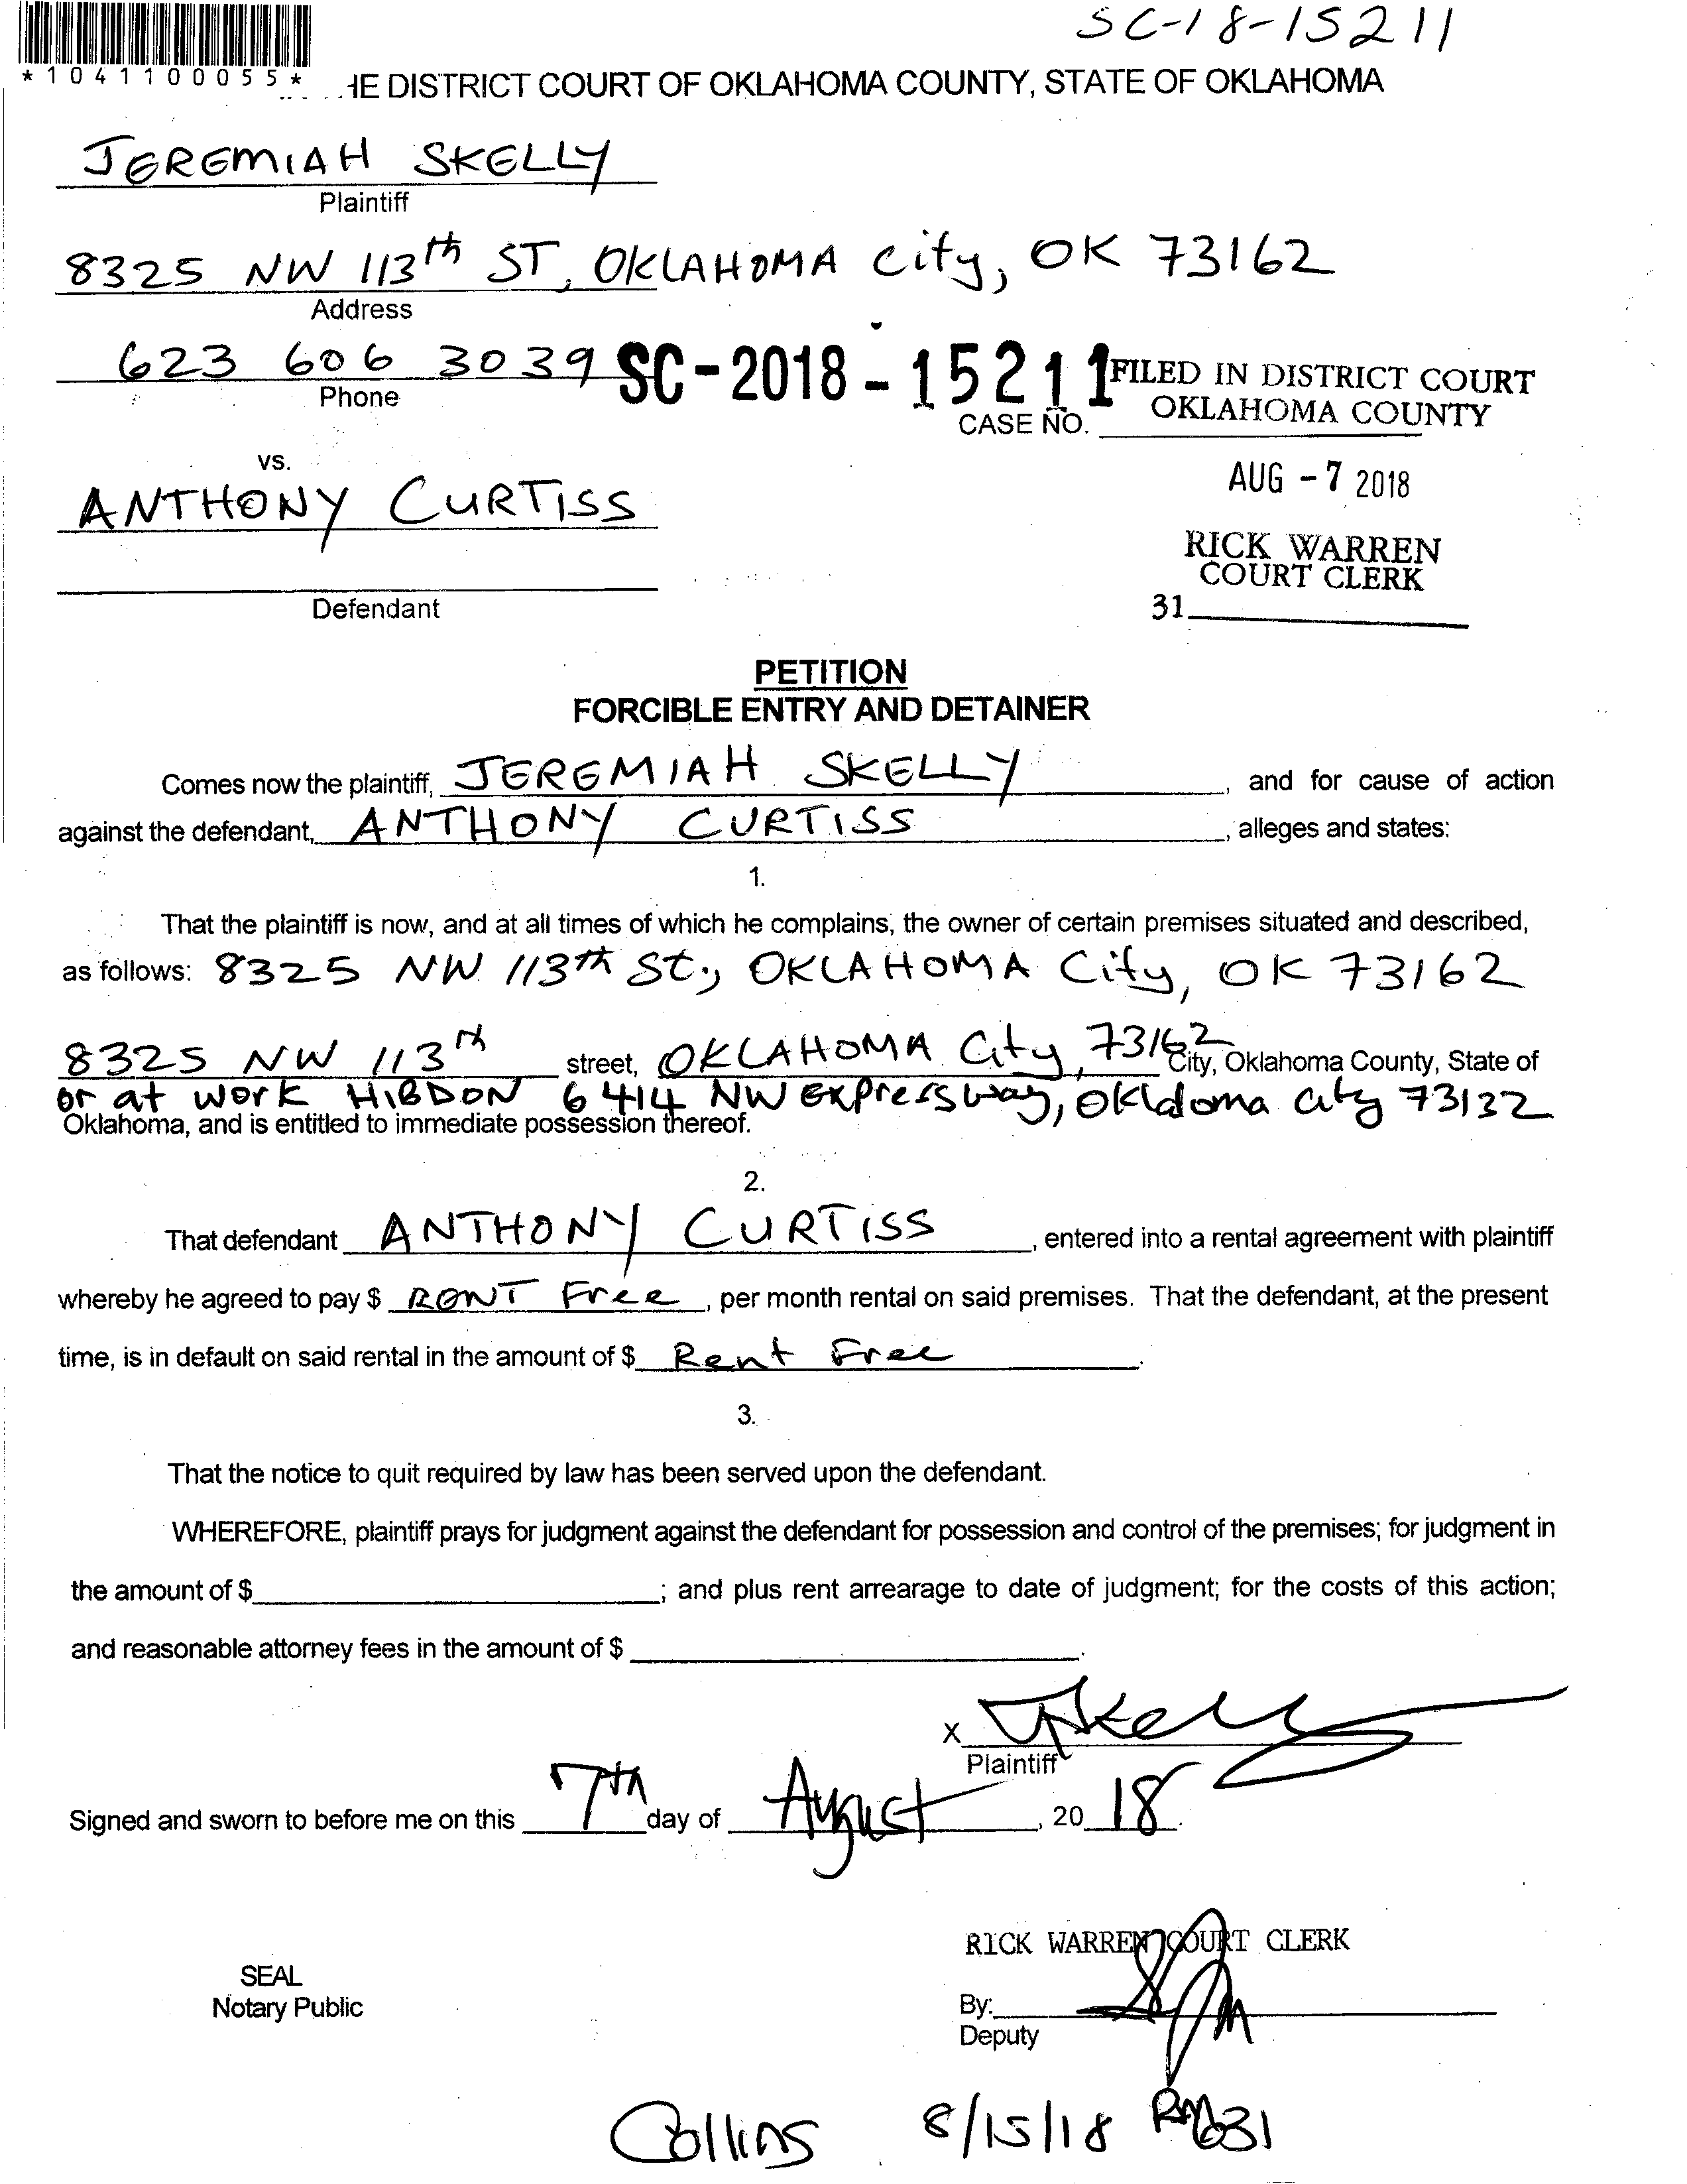 SC-18-15211
*1041100055*
HE DISTRICT COURT OF OKLAHOMA COUNTY, STATE OF OKLAHOMA
JEREMIAH SKELLY
Plaintiff
8325 NW 113th ST, OKLAHOMA City, OK 73162
Address
623 606 3039
Phone
SC-2018-15211
CASE NO.
FILED IN DISTRICT COURT
OKLAHOMA COUNTY
AUG -7 2018
RICK WARREN
COURT CLERK
31
vs.
ANTHONY CURTISS
Defendant
PETITION
FORCIBLE ENTRY AND DETAINER
Comes now the plaintiff, JEREMIAH SKELLY, and for cause of action
against the defendant, ANTHONY CURTISS, alleges and states:
1.
That the plaintiff is now, and at all times of which he complains, the owner of certain premises situated and described,
as follows: 8325 NW 113th St., OKLAHOMA City, OK 73162
8325 NW 113th street, OKLAHOMA City, 73162 City, Oklahoma County, State of
or at work HIBDON 6414 NW Expressway, Okladoma city 73132
Oklahoma, and is entitled to immediate possession thereof.
2.
That defendant ANTHONY CURTISS, entered into a rental agreement with plaintiff
whereby he agreed to pay $ RENT Free, per month rental on said premises. That the defendant, at the present
time, is in default on said rental in the amount of $ Rent Free.
3.
That the notice to quit required by law has been served upon the defendant.
WHEREFORE, plaintiff prays for judgment against the defendant for possession and control of the premises; for judgment in
the amount of $ ; and plus rent arrearage to date of judgment; for the costs of this action;
and reasonable attorney fees in the amount of $ .
X JSkelly
Plaintiff
Signed and sworn to before me on this 7th day of August, 20 18.
RICK WARREN COURT CLERK
SEAL
Notary Public
By:
Deputy
Collins 8/15/18 RM631